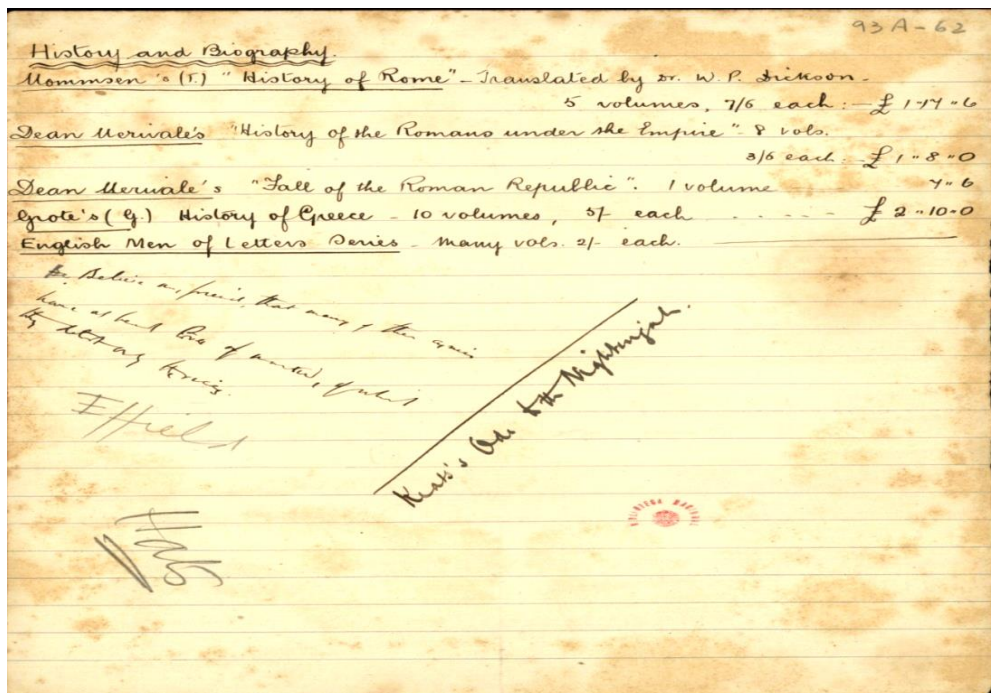 93A-62
History and Biography.
Mommsen's (T.) "History of Rome" - Translated by Dr. W. P. Dickson -
5 volumes, 7/6 each :- £ 1-17-6
Dean Merivale's "History of the Romans under the Empire" 8 vols.
3/6 each - £ 1"8"0
Dean Merivale's "Fall of the Roman Republic". 1 volume 7"6
Grote's (G.) History of Greece - 10 volumes, 5/ each ...... £ 2-10-0
English Men of Letters Series - many vols. 2/- each.
Believe me, friend, that many of them
have at
Keats's Ode to the Nightingale.